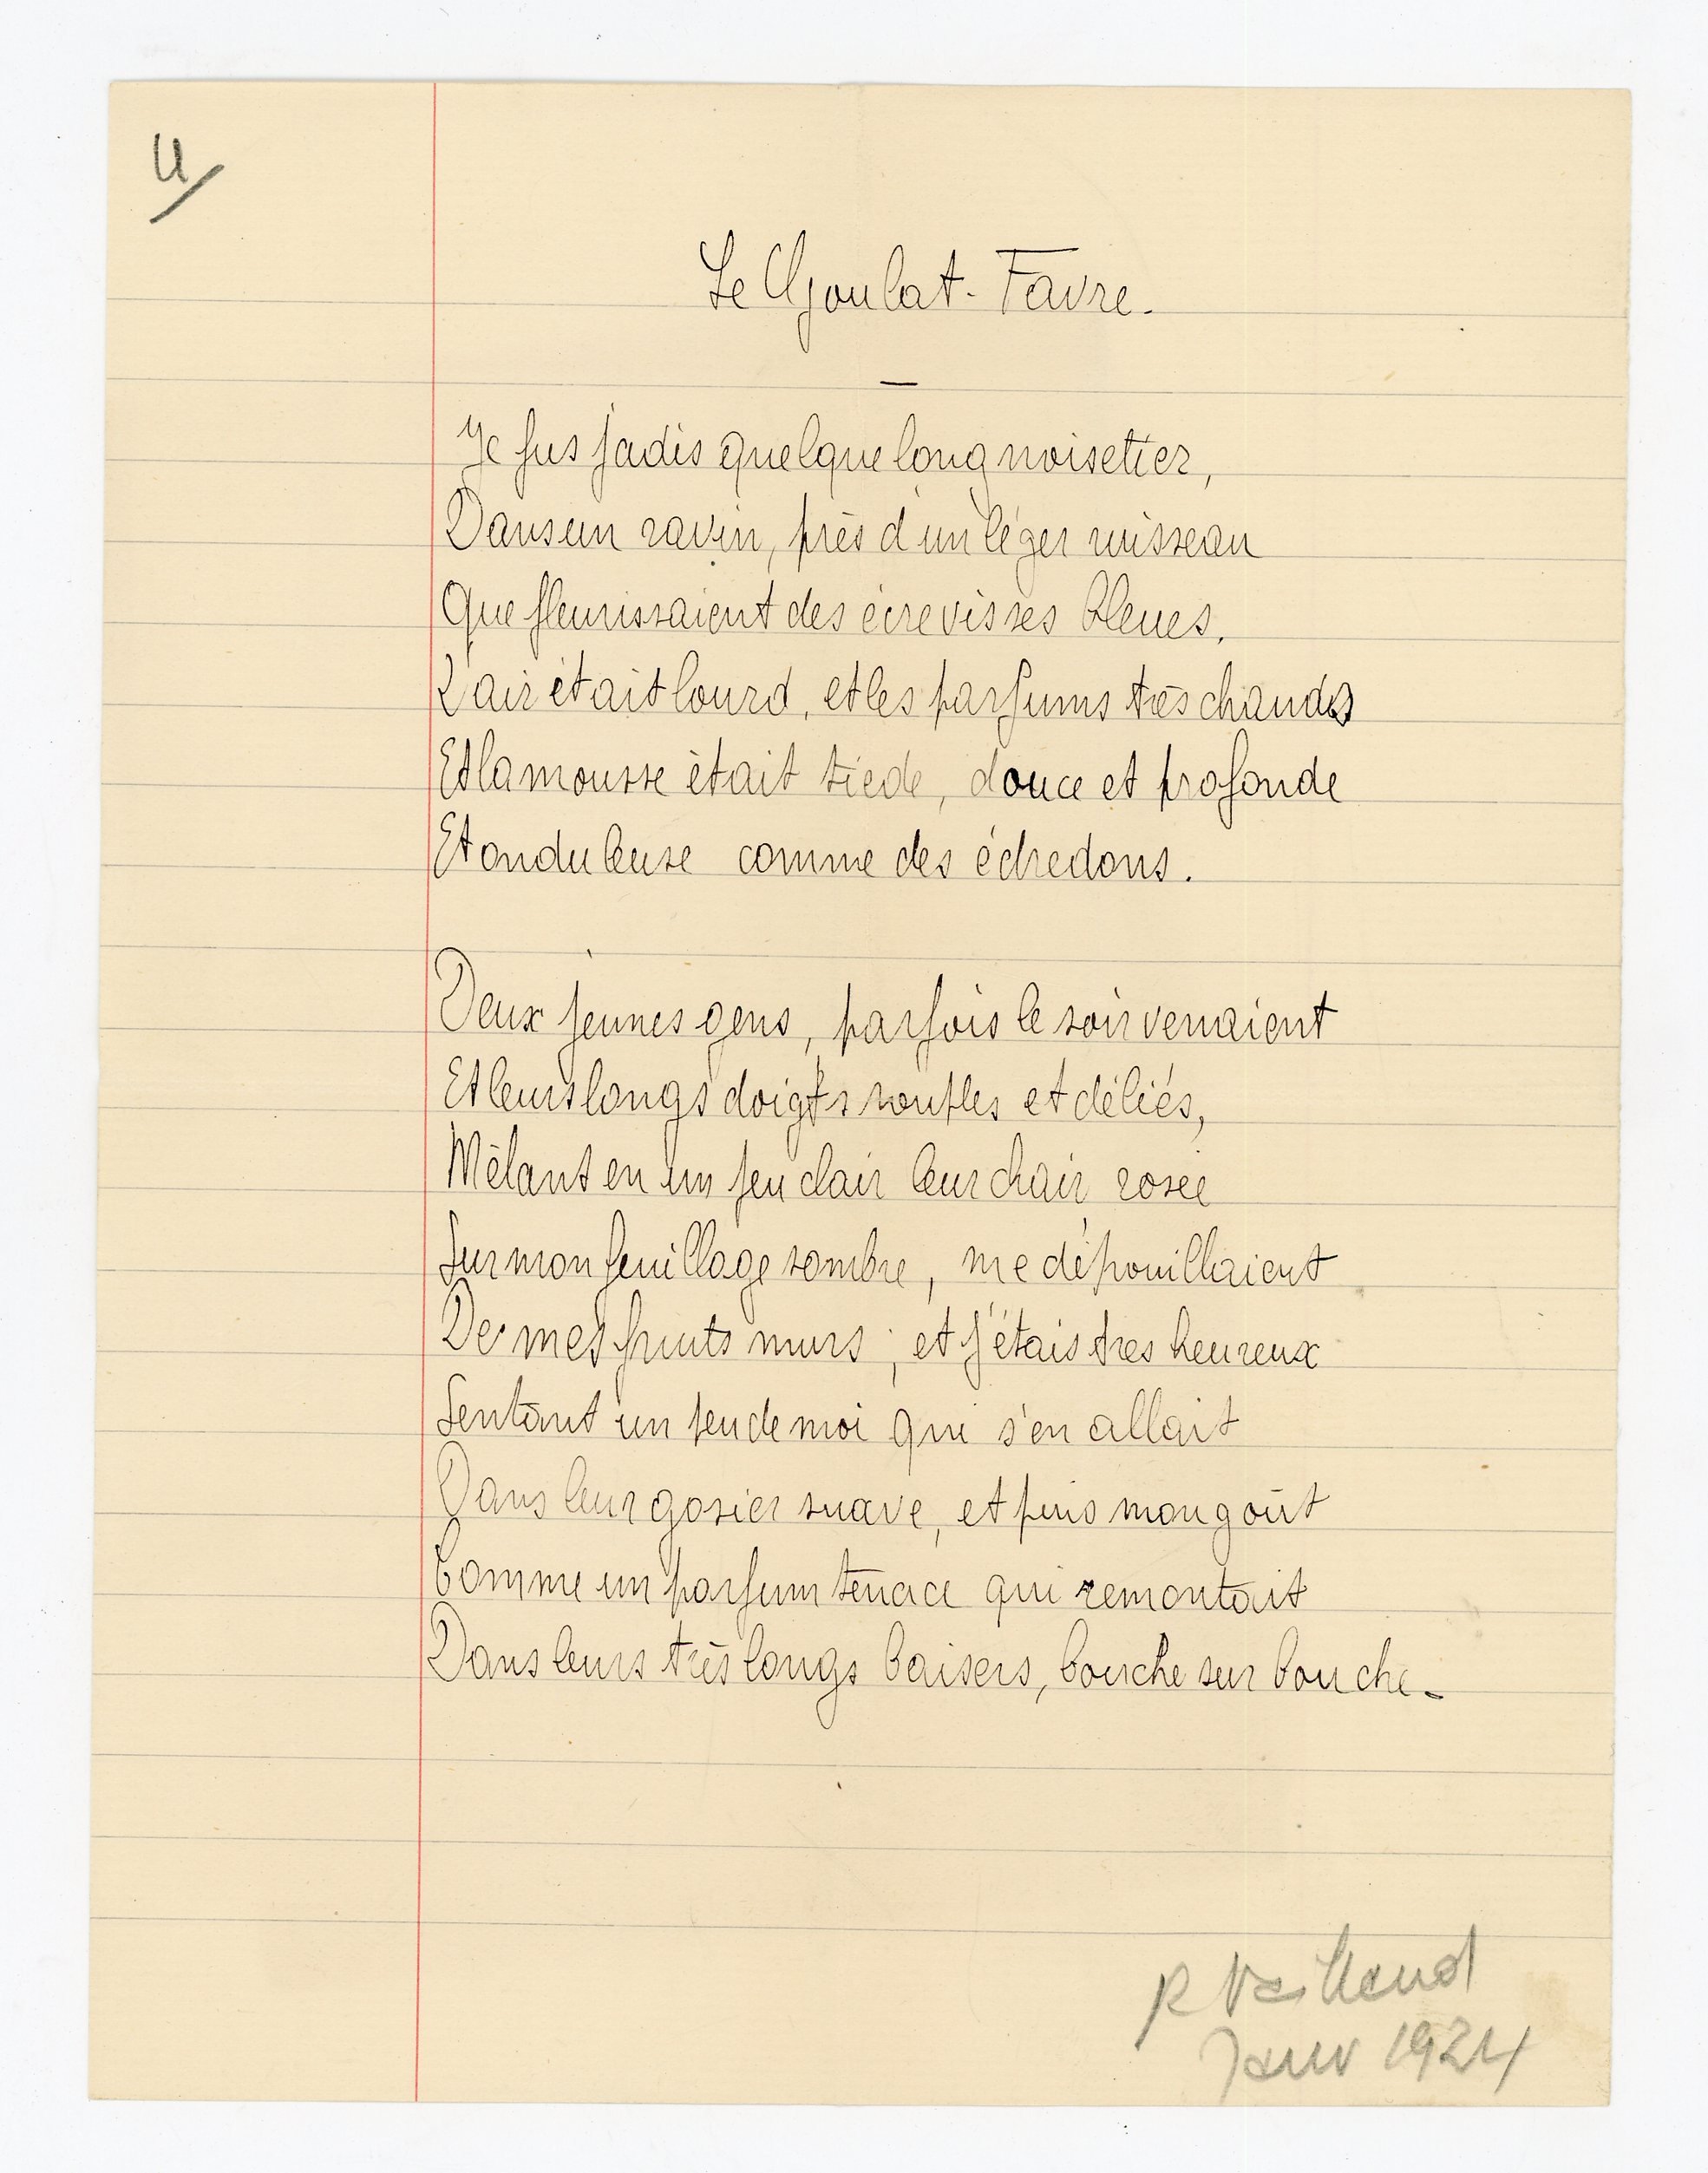 4/
Le Goulat-Favre.
—
Je fus jadis quelque long noisetier,
Dans un ravin, près d'un léger ruisseau
Que fleurissaient des écrevisses bleues.
L'air était lourd, et les parfums très chauds
Et la mousse était tiède, douce et profonde
Et onduleuse comme des édredons.
Deux jeunes gens, parfois le soir venaient
Et leurs longs doigts souples et déliés,
Mêlant en un jeu clair leur chair rosée
Sur mon feuillage sombre, me dépouillaient
De mes fruits murs ; et j'étais très heureux
Sentant un peu de moi qui s'en allait
Dans leur gosier suave, et puis mon goût
Comme un parfum tenace qui remontait
Dans leurs très longs baisers, bouche sur bouche.
R Vailland
Janv 1924